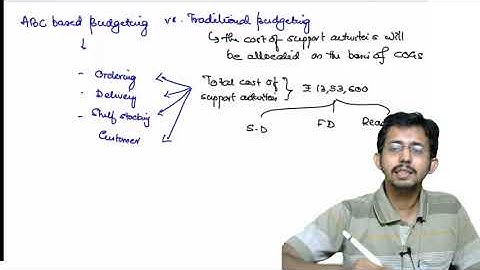 ABC based Budgeting vs. Traditional Budgeting
↳ the cost of support activities will
be allocated on the basis of COGS
- Ordering
- Delivery
- Shelf stocking
Customer
Total cost of
support activities } ₹ 13,53,600
S.D FD